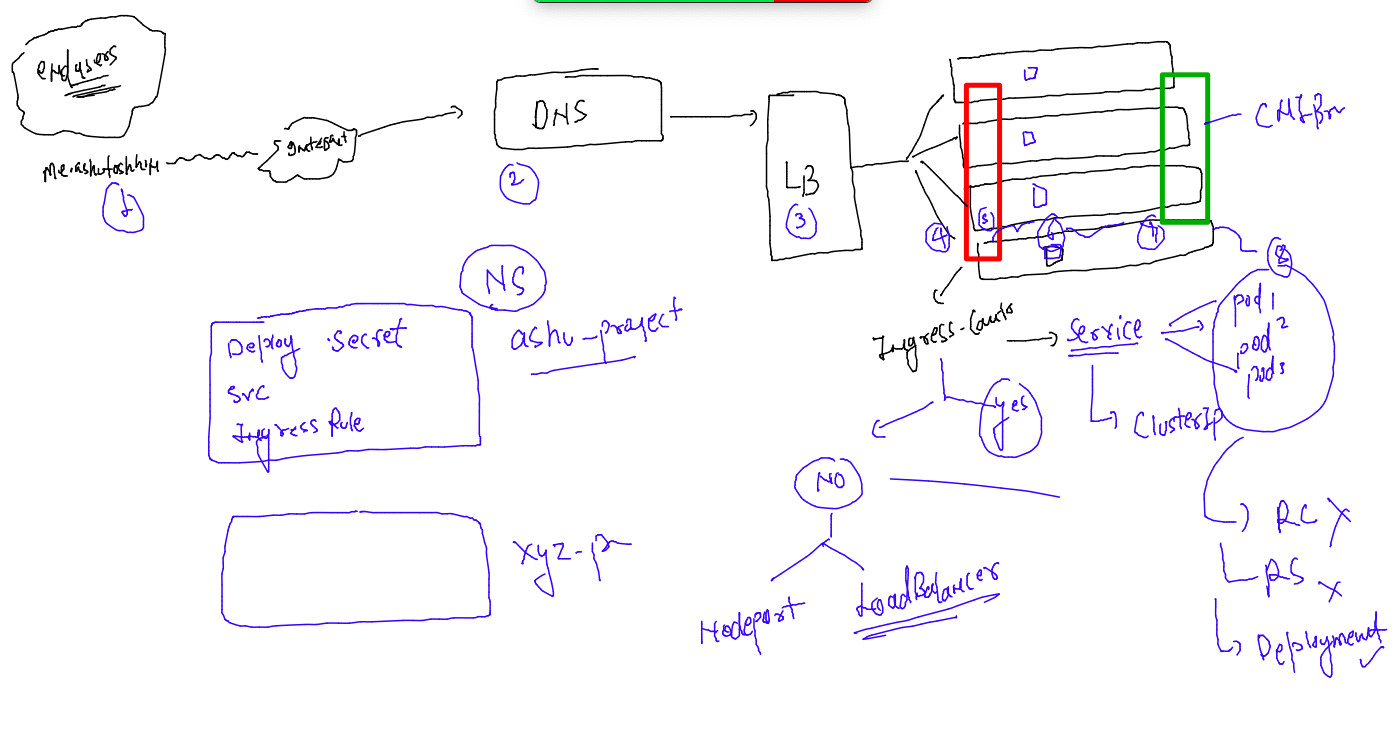 endusers
me.ashutoshh.in
1
DNS
2
LB
3
4
5
6
7
8
NS
Deploy secret
svc
Ingress Rule
ashu-project
Service
ClusterIP
pod1
pod2
pod3
yes
NO
Nodeport
LoadBalancer
xyz-p
RC X
RS X
Deployment ✓